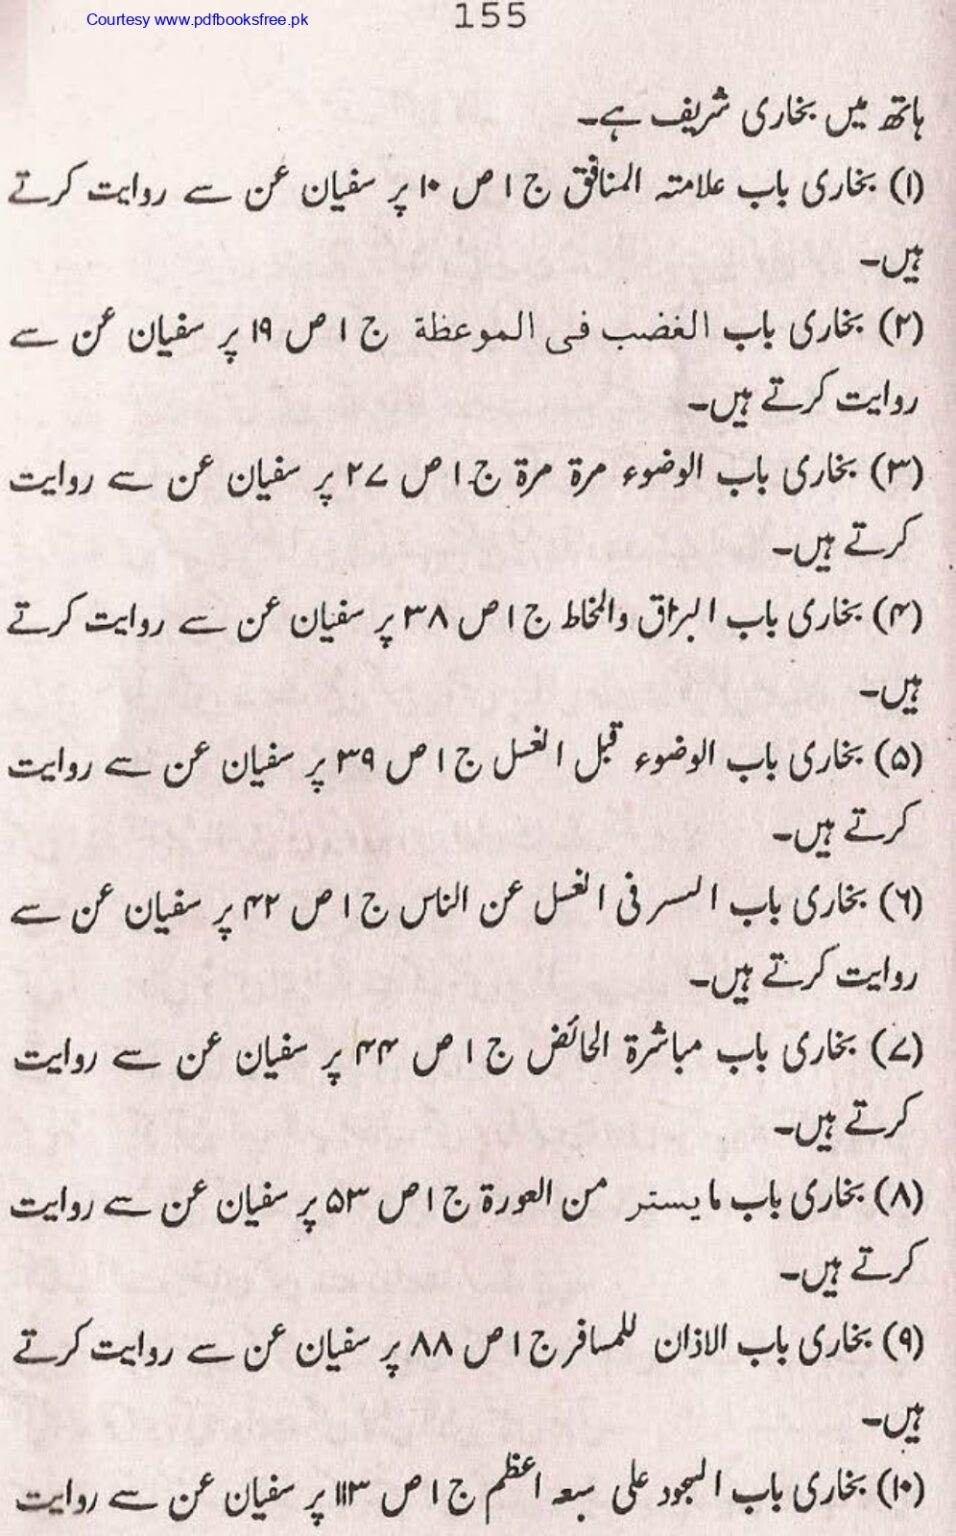 Courtesy www.pdfbooksfree.pk
155
ہاتھ میں بخاری شریف ہے۔
(۱) بخاری باب علامتہ المنافق ج ۱ ص ۱۰ پر سفیان عن سے روایت کرتے
ہیں۔
(۲) بخاری باب الغضب فی الموعظة ج ۱ ص ۱۹ پر سفیان عن سے
روایت کرتے ہیں۔
(۳) بخاری باب الوضوء مرة مرة ج ۱ ص ۲۷ پر سفیان عن سے روایت
کرتے ہیں۔
(۴) بخاری باب البزاق والمخاط ج ۱ ص ۳۸ پر سفیان عن سے روایت کرتے
ہیں۔
(۵) بخاری باب الوضوء قبل الغسل ج ۱ ص ۳۹ پر سفیان عن سے روایت
کرتے ہیں۔
(۶) بخاری باب السر فی الغسل عن الناس ج ۱ ص ۴۲ پر سفیان عن سے
روایت کرتے ہیں۔
(۷) بخاری باب مباشرة الحائض ج ۱ ص ۴۴ پر سفیان عن سے روایت
کرتے ہیں۔
(۸) بخاری باب مایستر من العورة ج ۱ ص ۵۳ پر سفیان عن سے روایت
کرتے ہیں۔
(۹) بخاری باب الاذان للمسافر ج ۱ ص ۸۸ پر سفیان عن سے روایت کرتے
ہیں۔
(۱۰) بخاری باب السجود علی سبعہ اعظم ج ۱ ص ۱۱۳ پر سفیان عن سے روایت